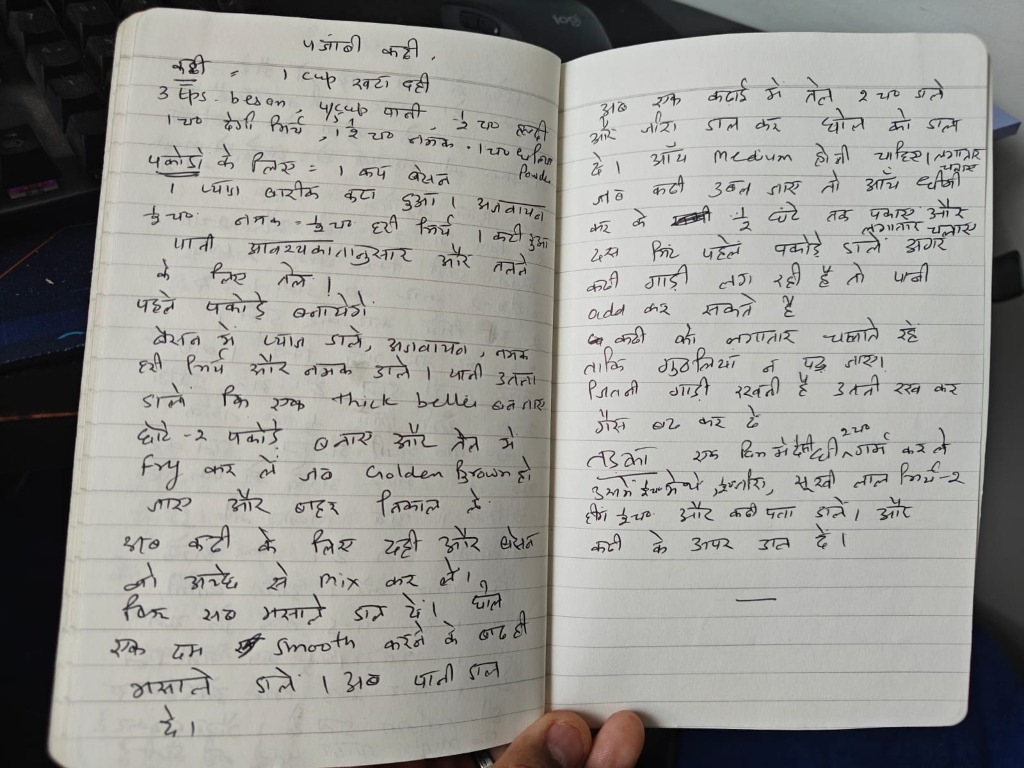 पंजाबी कढी .
कढी = 1 cup खटा दही
3 tps. besan, 4/5cup पानी 1/2 च० हल्दी
1 च० देगी मिर्च, 1 1/2 च० नमक . 1 च० धनिया powder
पकोडो के लिए = 1 कप बेसन
1 प्याज बारीक कटा हुआ । अजवायन
1/2 च० नमक - 1/2 च० हरी मिर्च 1 कटी हुआ
पानी आवश्यकातानुसार और तलने
के लिए तेल ।
पहले पकोड़े बनायेगें
बेसन में प्याज डाले, अजवायन, नमक
हरी मिर्च और नमक डाले । पानी उतना
डाले कि एक thick better बन जाए
छोटे -२ पकोड़े बनाए और तेल मे
fry कर लें जब Golden Brown हो
जाए और बाहर निकाल लें
अब कढी के लिए दही और बेसन
को अच्छे से mix कर ले।
फिर सब मसाले डाल दें। घोल
एक दम smooth करने के बाद ही
मसाले डालें । अब पानी डाल
दे।
अब एक कढाई में तेल 2 च० डाले
और जीरा डाल कर घोल को डाल
दे। आँच medium होनी चाहिए। लगातार
जब कढी उबल जाए तो आँच धीमी
कर के 1/2 घंटे तक पकाए और
लगातार चलाए
दस मिंट पहले पकोड़े डाले अगर
कढी गाढ़ी लग रही है तो पानी
add कर सकते है
कढी को लगातार चलाते रहे
ताकि गुठलियां न पड़ जाए।
जितनी गाढ़ी रखनी है उतनी रख कर
गैस बंद कर दे
तड़का एक पैन में देसी घी 2 च० गर्म कर ले
उसमें मेथी, जीरा, सूखी लाल मिर्च-2
हींग 1/2 च० और कढी पता डाले। और
कढी के ऊपर डाल दें।